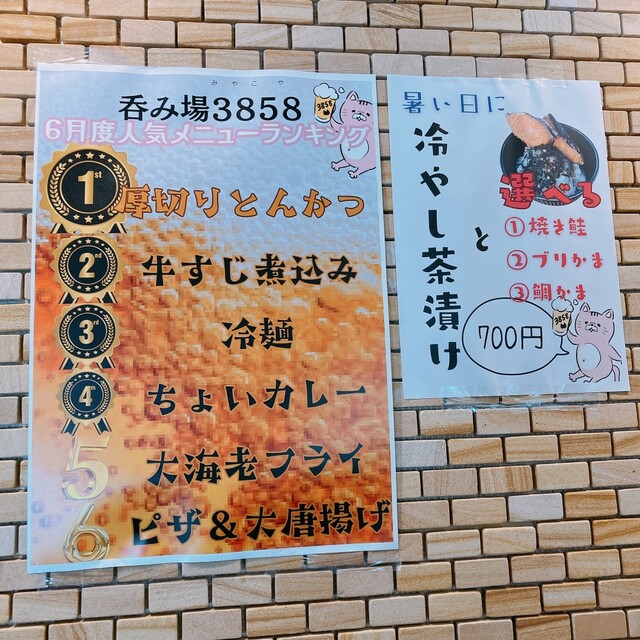 みやこや
呑み場3858
3858
6月度人気メニューランキング
1st 厚切りとんかつ
2nd 牛すじ煮込み
3rd 冷麺
4th ちょいカレー
5 大海老フライ
6 ピザ&大唐揚げ
暑い日に
冷やし茶漬け
と
選べる
①焼き鮭
②ブリかま
③鯛かま
700円
3858